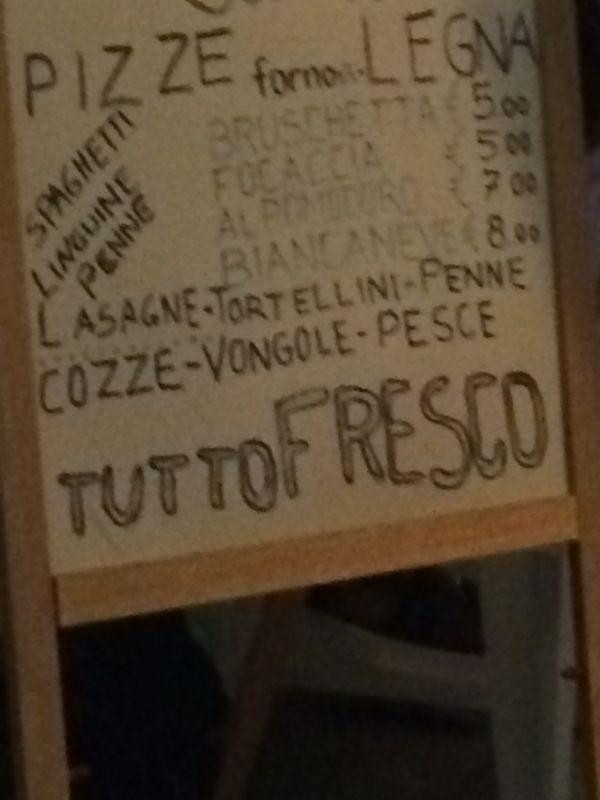 PIZZE forno a LEGNA
SPAGHETTI
LINGUINE
PENNE
BRUSCHETTA 5.00
FOCACCIA 5.00
AL POMODORO 7.00
BIANCANEVE 8.00
LASAGNE-TORTELLINI-PENNE
COZZE-VONGOLE-PESCE
TUTTO FRESCO